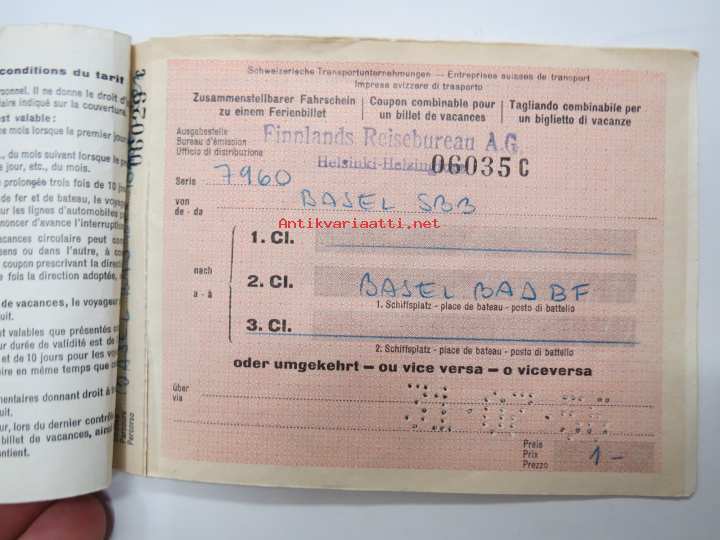 conditions du tarif
personnel. Il ne donne le droit d'
indiqué sur la couverture
est valable:
mois lorsque le premier jour
., du mois suivant lorsque le
jour, etc., du mois.
prolongée trois fois de 10 jours
de fer et de bateau, le
sur les lignes d'automobiles
annoncer d'avance l'interruption
vacances circulaire peut
sens ou dans l'autre, à
coupon prescrivant la
fois la direction adoptée,
de vacances, le voyageur
valables que présentés
durée de validité est de
et de 10 jours pour les
en même temps que
donnant droit à
lors du dernier
billet de vacances,
06029
Percorso
Schweizerische Transportunternehmungen — Entreprises suisses de transport
Imprese svizzere di trasporto
Zusammenstellbarer Fahrschein zu einem Ferienbillet
Coupon combinable pour un billet de vacances
Tagliando combinabile per un biglietto di vacanze
Ausgabestelle
Bureau d'émission
Ufficio di distribuzione
Finnlands Reisebureau A.G.
Helsinki-Helsingfors
06035 C
Serie 7960
von
de - da
BASEL SBB
Antikvariaatti.net
1. Cl.
nach
a - à
2. Cl. BASEL BAD BF
1. Schiffsplatz - place de bateau - posto di battello
3. Cl.
2. Schiffsplatz - place de bateau - posto di battello
oder umgekehrt — ou vice versa — o viceversa
über
via
Preis
Prix
Prezzo
1-